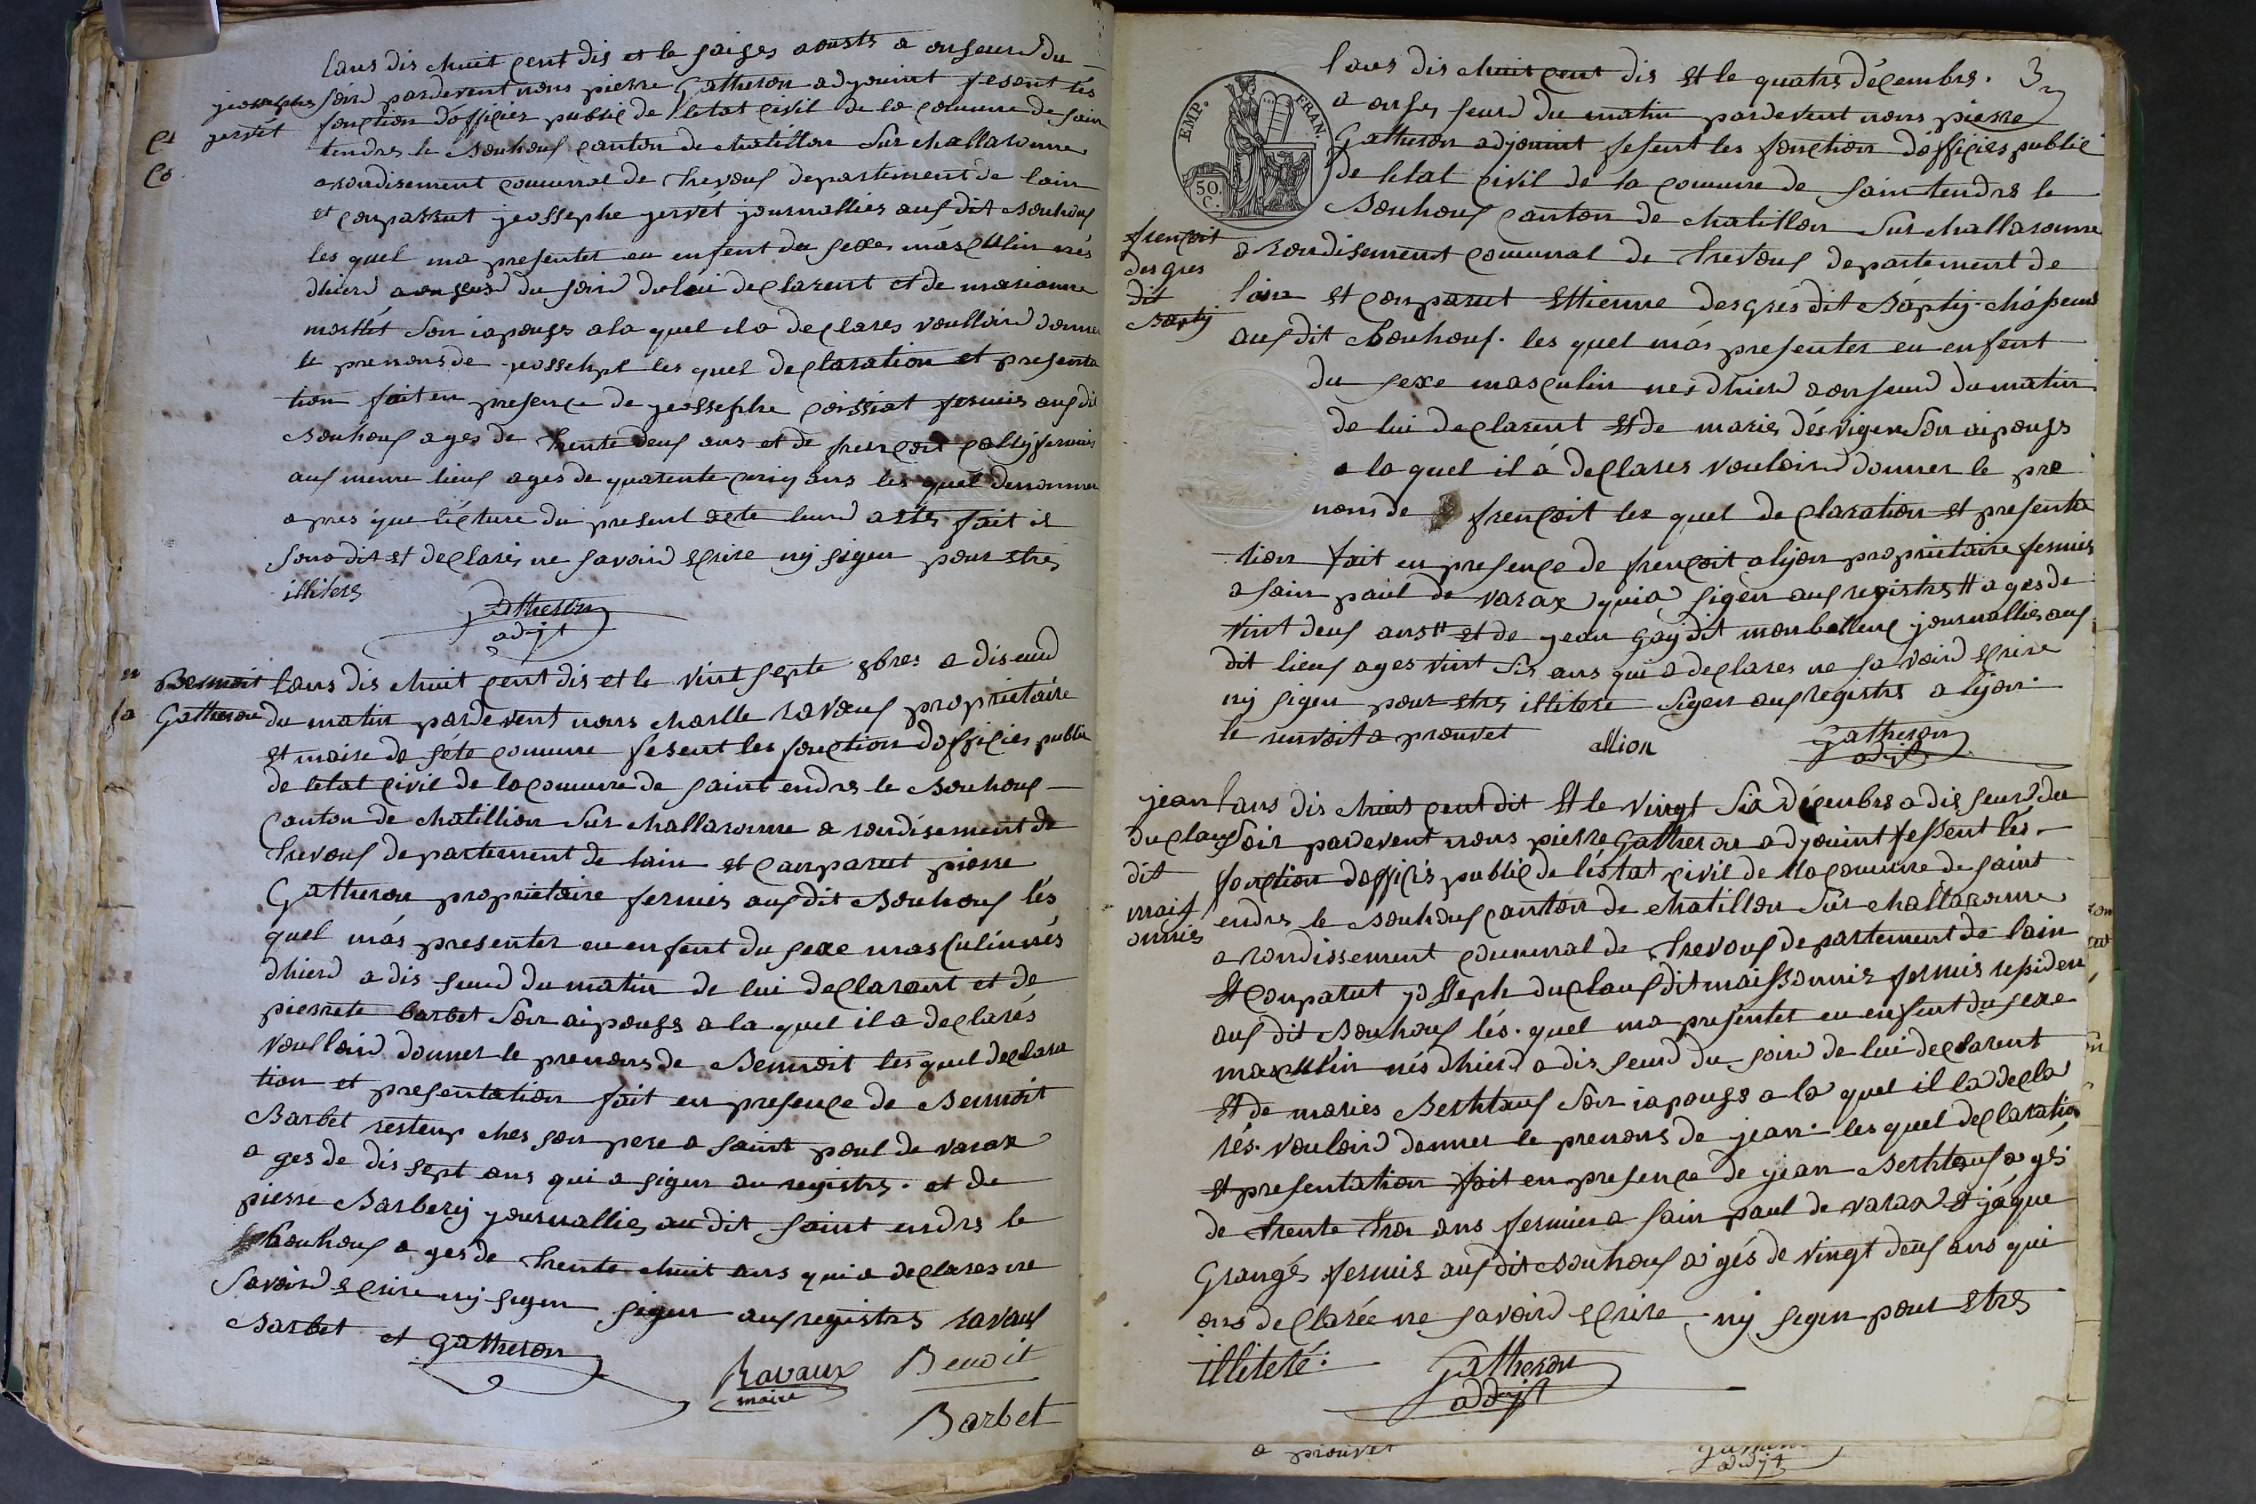 lans dis chuit cent dis et le saises aousts a onseurd du
soird pardevent nous pierre Gatheron adjouint fesent lés
jeosephes
jervét
fonction d'officier public de l'etat civil de la comune de sain
tendres le Bouhouf canton de chatillon sur challaronne
arondisement comunal de trevouf departement de lain
et conparrut jeossephe jervét journallier auf dit Bouhouf
les quel ma presenter eu enfent du sexe masculin nés
dhierd a onseurd du soird de lui declarent et de marianne
morllét son iapouse a la quel il a declares voulloird donner
le prenons de jeossehpt les quel declaration et presenta
tion fait en presence de jeossephe poissiat fermier auf dit
Bouhouf ages de trente deuf ans et de frencoit polly fermier
auf meme lieuf ages de quarente cinq ans les quel denommer
apres que lécture du present acte leurd astés fait il
sons dit et declarés ne savoird ecrire ny signer pour etres
illiters
Gatheron
adjt
Bennoit
Gatheron
lans dis chuit cent dis et le vint septe 8bres a diseurd
du matin pardevent nous charlle ravouf propriétaire
et maire de séte comune fesent les fonction d'officier public
de letat civil de la comune de saint endres le Bouhouf
Canton de chatillion sur challaronne arondisement de
trevouf departement de lain et Conparut pierre
Gatheron propriétaire fermier auf dit Bouhouf lés
quél más presenter eu enfent du sexe masculin nés
dhierd a dis seurd du matin de lui declarent et de
pierrete barbet son aipouse a la quel il a declarés
voulloird donner le prenons de Bennoit les quel declara
tion et presentation fait en presence de Bennoit
Barbet resteup ches son pere a saint poul de varax
ages de dis sept ans qui a signer au registres. et de
pierre Barbery journallier au dit saint endres le
Bouhouf ages de trente chuit ans qui a declares ne
savoird ecrire ny signer signer auf registres ravauf
Barbet et Gatheron
Ravaux
maire
Benoit
Barbet
3
EMP. FRAN.
50. C.
lans dis chuit cent dis et le quatres décembres.
a onses seurd du matin pardevent nous pierre
Gatheron adjouint fesent les fonction d'officier public
de letat civil de la comune de saintendres le
Bouhouf canton de chatillon sur challaronne
frençoit
desgres
dit
Bapty
arondisement comunal de trevouf departement de
lain et conparut ettienne desgrés dit Bápty chápeurs
auf dit Bouhouf. les quel más presenter eu enfent
du sexe masculin nés dhierd a onseurd du matin
de lui declarent et de maries désvigen son aipouse
a la quel il á declares vouloird donner le pre
nom de frençoit les quel declaration et presenta
tion fait en presence de frençoit alyon propriétaire fermier
a sain paul de varax qui a signer auf registres ages de
vint deuf ans et de jean gay dit monbelleuf journallier auf
dit lieuf ages vint six ans qui a declares ne savoird ecrire
ny signer pour etres illitere signer auf registres alyon.
le renvoit aprouvet
allion
Gatheron
adjt
jean
duclauf
dit
mais
onnier
lans dis chuit cent dit et le vingt six décembres a dis seurd du
soir pardevent nous pierre Gatheron adjouint fessent lés
fonction d'officié public de l'éstat civil de lla comune de saint
endres le Bouhouf canton de chatillon sur challaronne
arondissement comunal de trevouf departement de lain
et conparut josseph duclauf dit maissonnier fermier residen
auf dit Bouhouf lés. quel ma presénter eu enfent du sexe
masculin nés dhierd a dis seurd du soird de lui declarent
et de maries Berhtauf son iapouse a la quel il la decla
rés. vouloird donner le prenons de jean. les quel declaration
et presentation fait en presence de jean Berhtauf agés
de trente trois ans fermier a sain paul de varax et jáque
Grangés fermier auf dit Bouhouf agés de vingt deuf ans qui
ons declarée ne savoird ecrire ny signer pour etres
illiteré.
Gatheron
addjt
a prouver
adjt